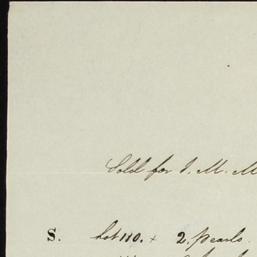 Sold for J. M. M
S. Lot 110. + 2 pearls.